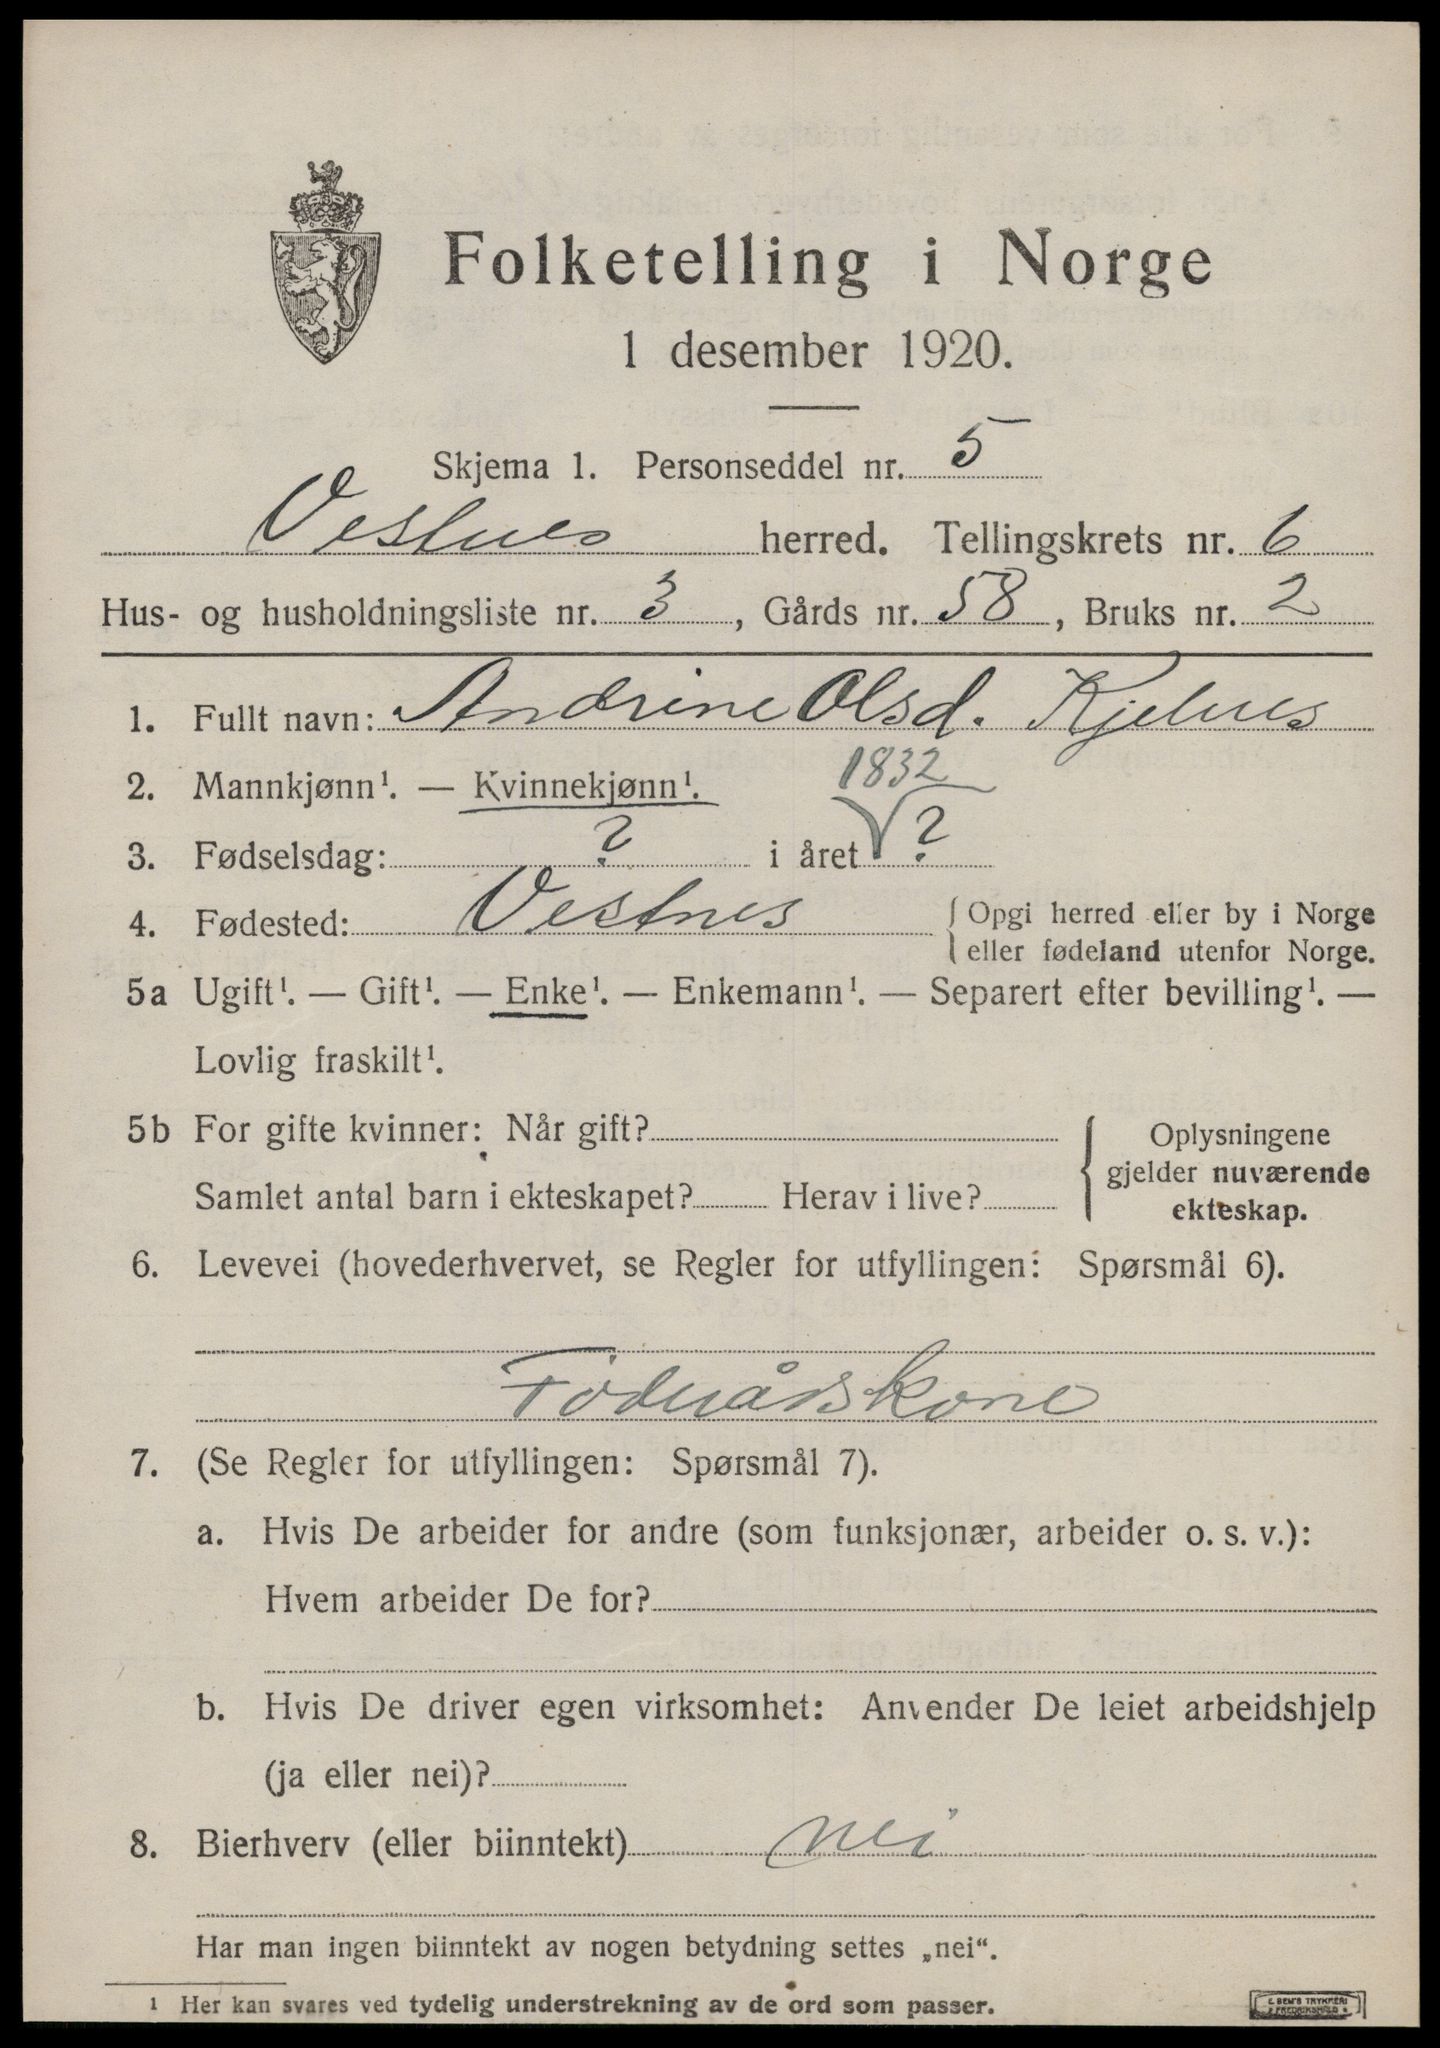 Folketelling i Norge
1 desember 1920.
Skjema 1. Personseddel nr. 5
Vestnes herred. Tellingskrets nr. 6
Hus- og husholdningsliste nr. 3, Gårds nr. 58, Bruks nr. 2
1. Fullt navn: Andrine Olsd. Kjelnes
2. Mannkjønn¹. — Kvinnekjønn¹. 1832
3. Fødselsdag: ? i året ?
4. Fødested: Vestnes { Opgi herred eller by i Norge
eller fødeland utenfor Norge.
5a Ugift¹. — Gift¹. — Enke¹. — Enkemann¹. — Separert efter bevilling¹. —
Lovlig fraskilt¹.
5b For gifte kvinner: Når gift? { Oplysningene
gjelder nuværende
Samlet antal barn i ekteskapet? Herav i live?
ekteskap.
6. Levevei (hovederhvervet, se Regler for utfyllingen: Spørsmål 6).
Föderådskone
7. (Se Regler for utfyllingen: Spørsmål 7).
a. Hvis De arbeider for andre (som funksjonær, arbeider o. s. v.):
Hvem arbeider De for?
b. Hvis De driver egen virksomhet: Anvender De leiet arbeidshjelp
(ja eller nei)?
8. Bierhverv (eller biinntekt) nei
Har man ingen biinntekt av nogen betydning settes „nei“.
¹ Her kan svares ved tydelig understrekning av de ord som passer.
E. SEM'S TRYKKERI
FREDRIKSHALD